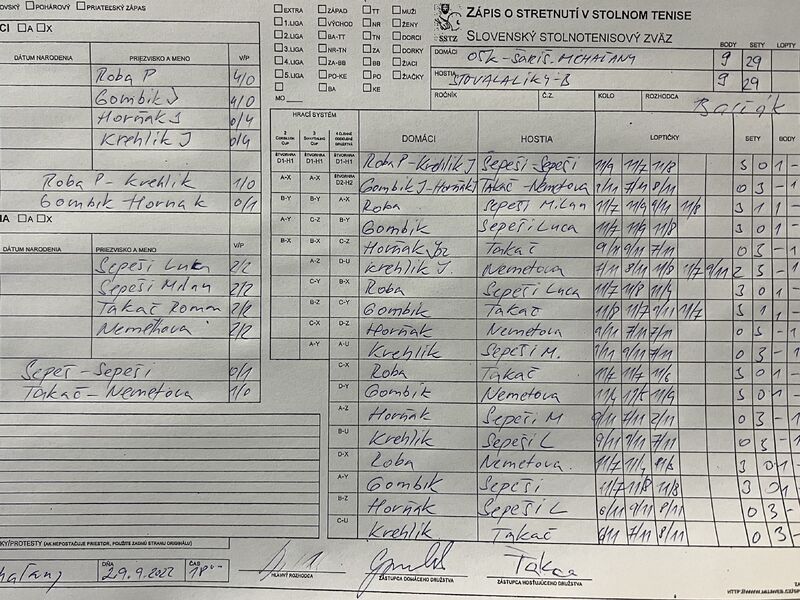 OVSKÝ POHÁROVÝ PRIATEĽSKÝ ZÁPAS
ZÁPIS O STRETNUTÍ V STOLNOM TENISE
SLOVENSKÝ STOLNOTENISOVÝ ZVÄZ
SSTZ
EXTRA ZÁPAD TT MUŽI
1.LIGA VÝCHOD NR ŽENY
2.LIGA BA-TT TN DORCI
3.LIGA NR-TN ZA DORKY
4.LIGA ZA-BB BB ŽIACI
5.LIGA PO-KE PO ŽIAČKY
BA KE
MO
BODY SETY LOPTY
DOMÁCI OŠK - SARIŠ. MCHAĽANY 9 29
HOSTIA STOVALALIKY-B 9 29
ROČNÍK Č.Z. KOLO ROZHODCA
CI A X
DÁTUM NARODENIA PRIEZVISKO A MENO V/P
Roba P 4/0
Gombik J 4/0
Horňak J 0/4
Krehlik J 0/4
Roba P - Krehlik 1/0
Gombik Hornak 0/1
IA A X
DÁTUM NARODENIA PRIEZVISKO A MENO V/P
Šepeši Luca 2/2
Šepeši Milan 2/2
Takač Roman 2/2
Nemethova 2/2
Šepeš - Sepeši 0/1
Takač - Nemetova 1/0
HRACÍ SYSTÉM
DOMÁCI HOSTIA LOPTIČKY SETY BODY
ŠTVORHRA D1-H1 ŠTVORHRA D1-H1 ŠTVORHRA D1-H1 Roba P - Krehlik J Šepeši - Šepeši 11/9 11/7 11/8 3 0 1 -
A-X A-X ŠTVORHRA D2-H2 Gombik J - Horňak J Takač - Nemetova 7/11 8/11 0 3 - 1
B-Y B-Y A-X Roba Sepeši Milan 11/7 11/9 9/11 11/8 3 1 1 -
A-Y C-Z B-Y Gombik Šepeši Luca 11/7 11/9 11/8 3 0 1 -
B-X B-X C-Z Horňak Takač 9/11 9/11 7/11 0 3 - 1
A-Z D-U Krehlik J. Nemetova 7/11 8/11 11/8 11/7 9/11 2 3 - 1
C-Y B-X Roba Šepeši Luca 11/7 11/8 11/9 3 0 1 -
B-Z C-Y Gombik Takač 11/8 11/7 9/11 11/7 3 1 1 -
C-X D-Z Horňak Nemetova 9/11 7/11 7/11 0 3 - 1
A-Y A-U Krehlik Sepeši M. 7/11 9/11 7/11 0 3 - 1
C-X Roba Takač 11/7 11/7 11/6 3 0 1 -
D-Y Gombik Nemetova 11/9 3 0 1 -
A-Z Horňak Šepeši M 9/11 7/11 2/11 0 3 - 1
B-U Krehlik Šepeši L 9/11 9/11 7/11 0 3 - 1
D-X Roba Nemetova. 11/7 3 0 1 -
A-Y Gombik Šepeši 11/7 11/8 11/8 3 0 1 -
B-Z Horňak Šepeši L 6/11 9/11 8/11 0 3 - 1
C-U Krehlik Takač 6/11 7/11 8/11 0 3 - 1
KY/PROTESTY (AK NEPOSTAČUJE PRIESTOR, POUŽITE ZADNÚ STRANU ORIGINÁLU)
DŇA 29.9.2022 ČAS 18
HLAVNÝ ROZHODCA ZÁSTUPCA DOMÁCEHO DRUŽSTVA ZÁSTUPCA HOSŤUJÚCEHO DRUŽSTVA